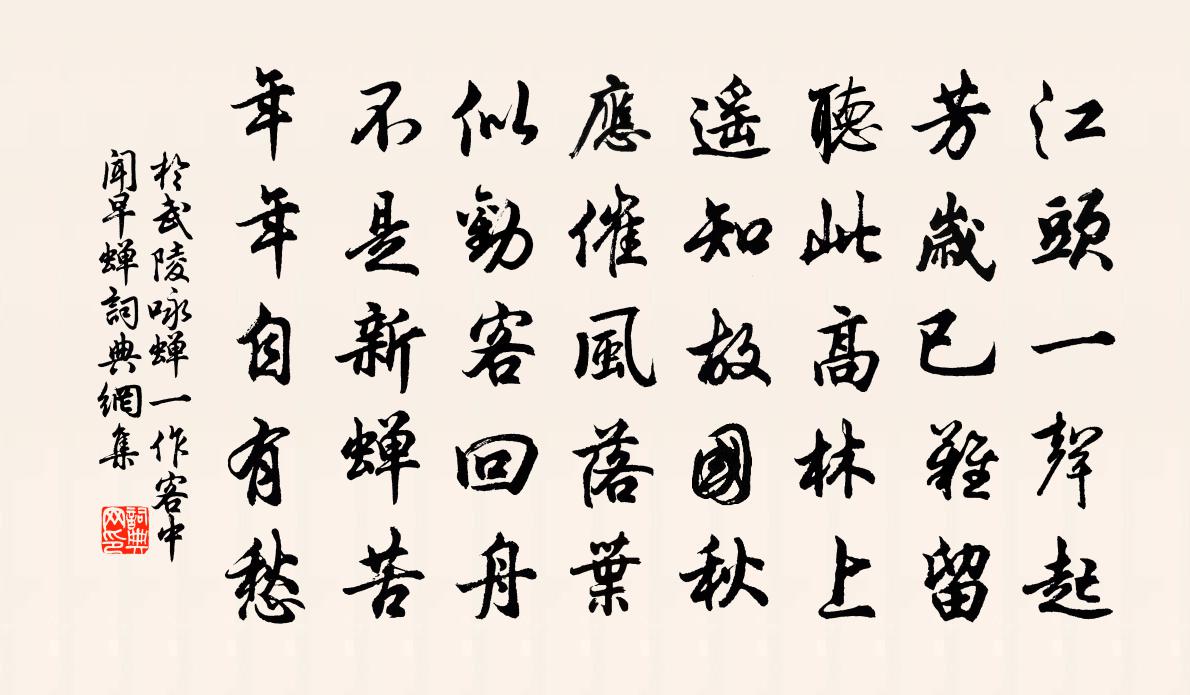 江頭一聲起
芳歲已難留
聽此高林上
遥知故國秋
應催風落葉
似勸客回舟
不是新蟬苦
年年自有愁
於武陵咏蟬一作客中
聞早蟬詞典網集
詞典
网印